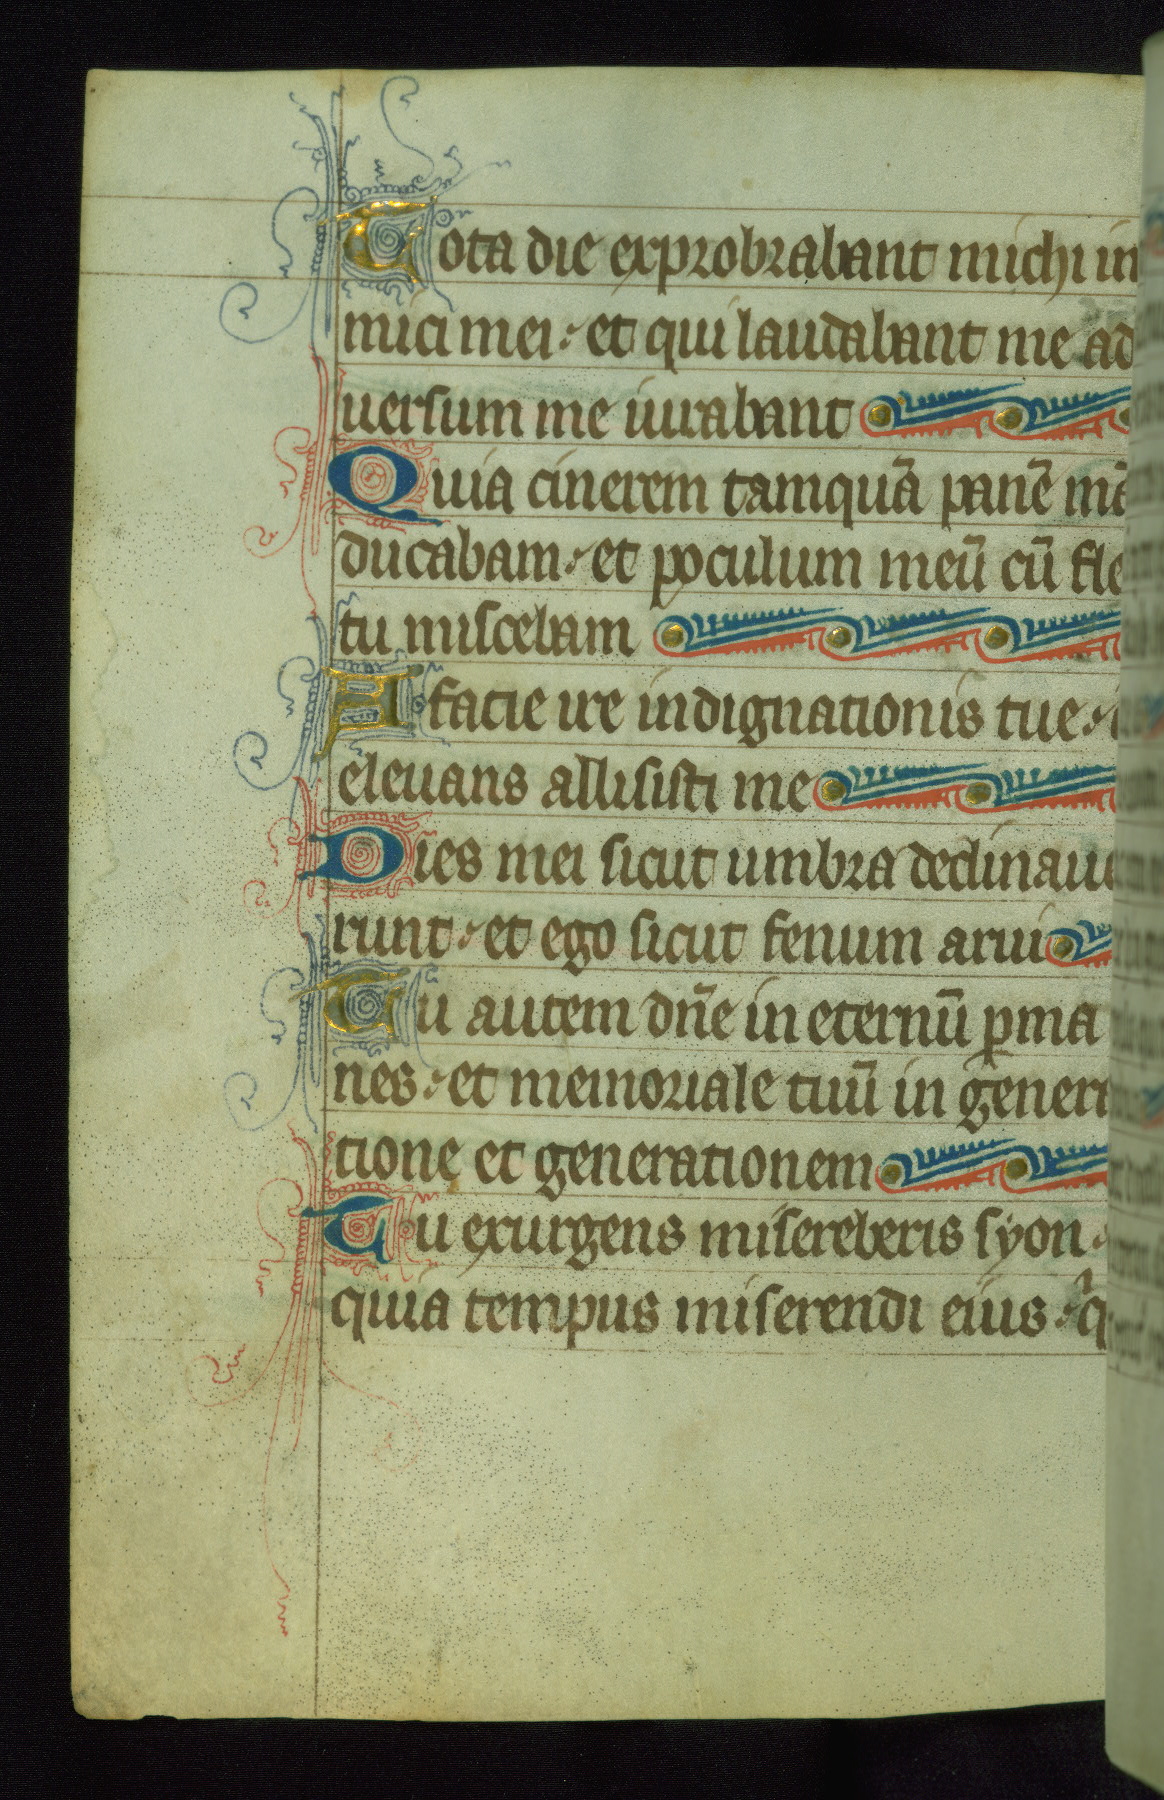 Tota die exprobrabant michi in
mici mei· et qui laudabant me ad
uersum me iurabant
Quia cinerem tamquā panē mā
ducabam· et poculum meū cū fle
tu miscebam
A facie ire indignationis tue·
eleuans allisisti me
Dies mei sicut umbra declinaue
runt· et ego sicut fenum arui
Tu autem dn̄e in eternū ꝑma
nes· et memoriale tuū in genera
tione et generationem
Tu exurgens misereberis syon·
quia tempus miserendi eius·